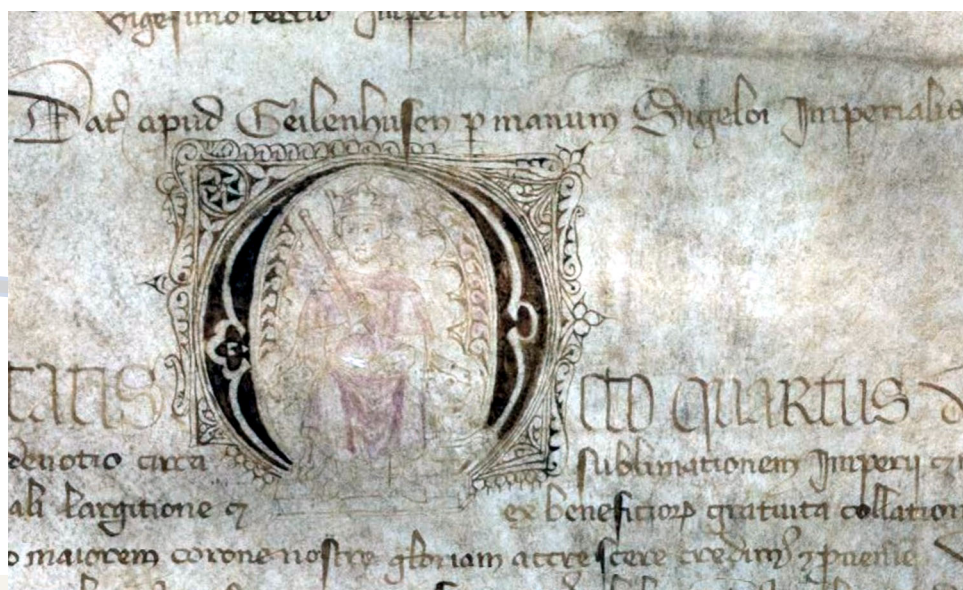 vigesimo tertio Imperii
Dat̃ apud Geilenhusen ꝑ manum Sigeloi Imperialis
TATIS OCTO QUARTUS
deuotio circa sublimationem Imperij ⁊
ali largitione ⁊ ex beneficioꝝ gratuita collation
maiorem corone nostre gloriam accrescere credimꝰ ⁊